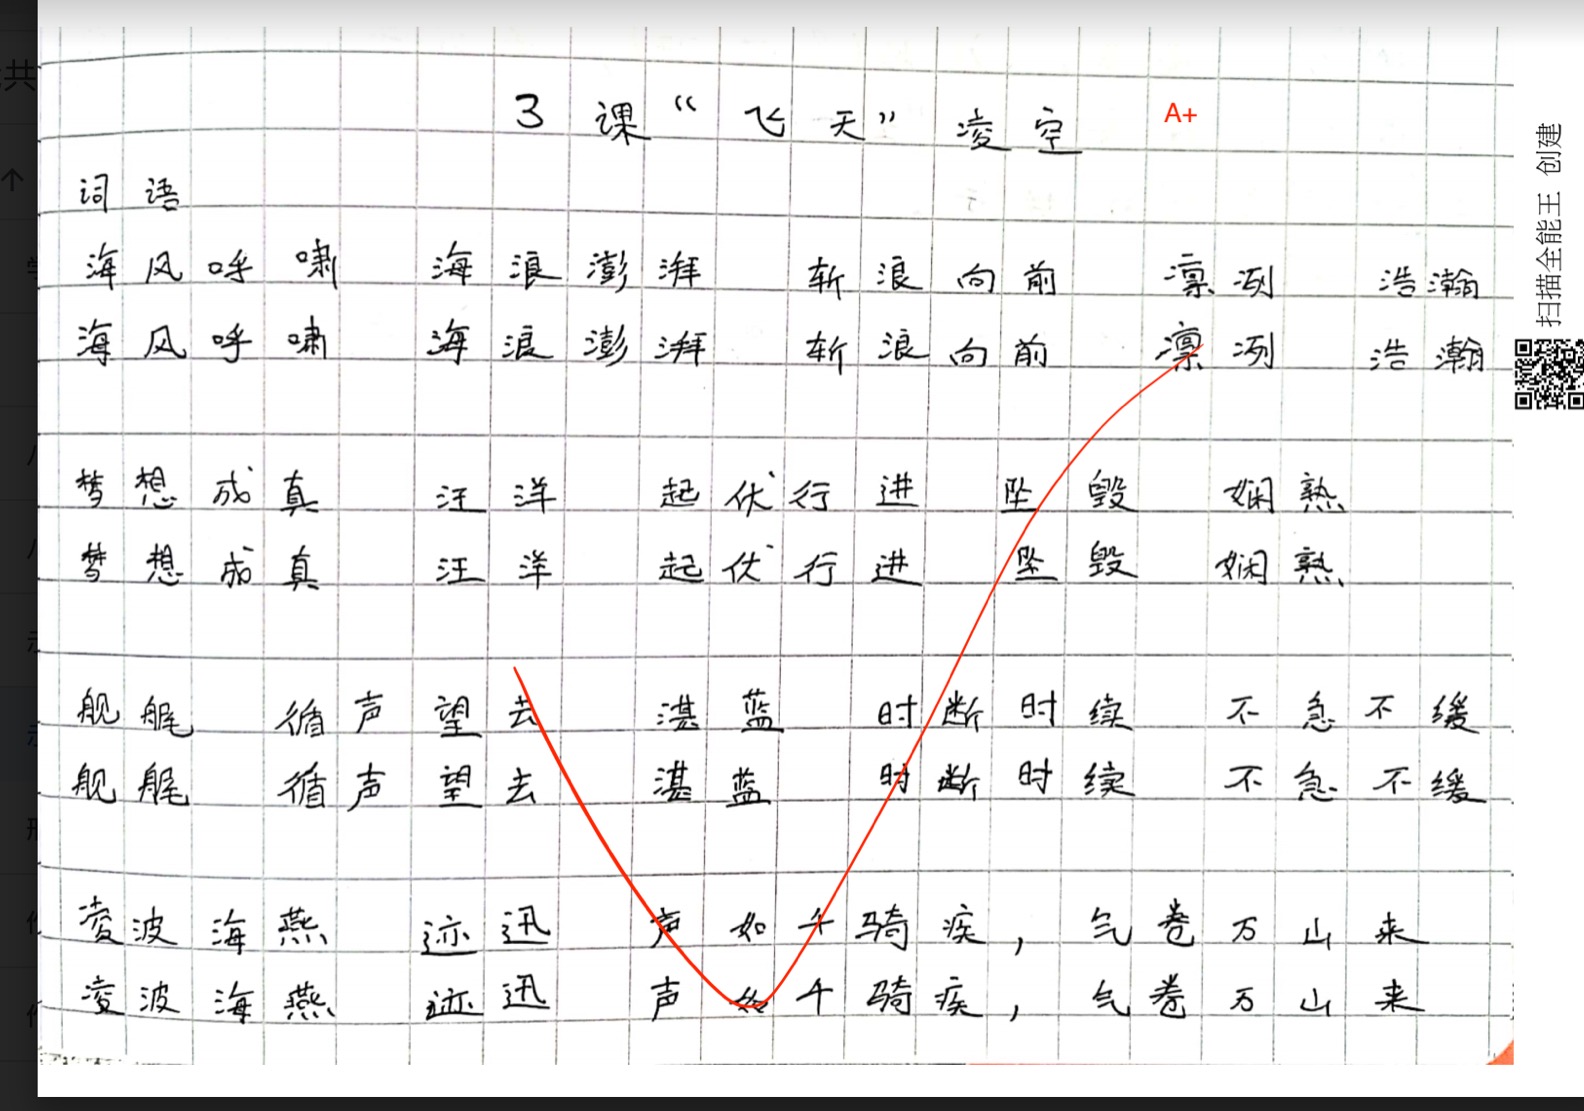 3 课“飞天”凌空 A+
词语
海风呼啸 海浪澎湃 斩浪向前 凛冽 浩瀚
海风呼啸 海浪澎湃 斩浪向前 凛冽 浩瀚
梦想成真 汪洋 起伏行进 坠毁 娴熟
梦想成真 汪洋 起伏行进 坠毁 娴熟
舰艉 循声望去 湛蓝 时断时续 不急不缓
舰艉 循声望去 湛蓝 时断时续 不急不缓
凌波海燕 迹迅 声如千骑疾，气卷万山来
凌波海燕 迹迅 声 千骑疾，气卷万山来
扫描全能王 创建
共